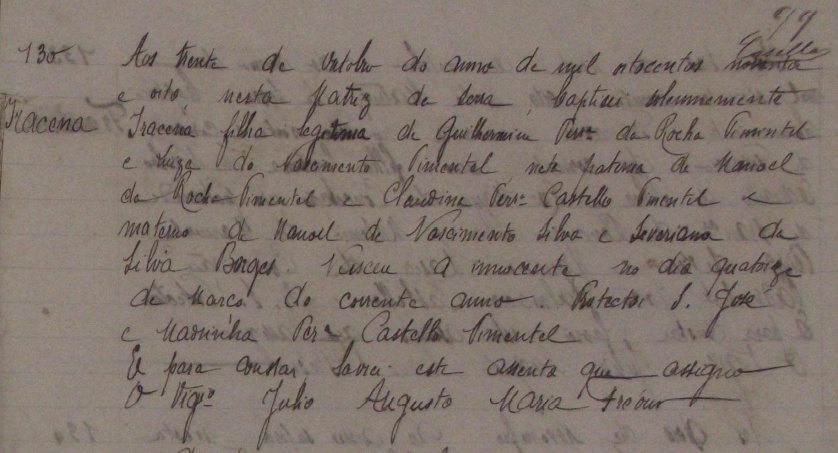 99
130 Aos trinta de Outubro do anno de mil oitocentos noventa
e oito, nesta Matriz da Serra, baptisei solemnemente
Iracena Iracena filha legitima de Guilhermino Perª da Rocha Pimentel
e Luiza do Nascimento Pimentel, neta paterna de Manoel
da Rocha Pimentel e Claudina Perª Castello Pimentel e
materno de Manoel do Nascimento Silva e Severiana da
Silva Borges. Nasceu a innocente no dia quatorze
de Março do corrente anno. Protector S. José
e Madrinha Perª Castello Pimentel
E para constar lavrei este assento que assigno
O Vigrº Julio Augusto Maria